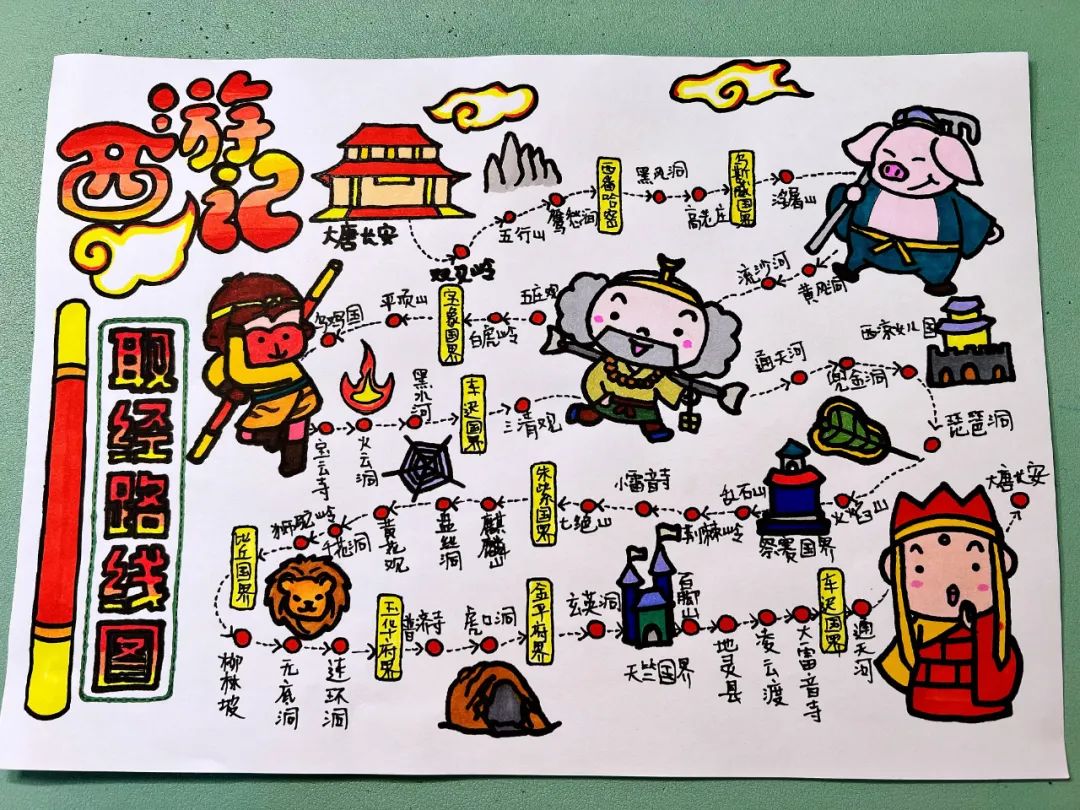 西游记
取经路线图
大唐长安
双叉岭
五行山
鹰愁涧
西番哈密
黑风洞
高老庄
乌斯藏国界
浮屠山
黄风洞
流沙河
五庄观
白虎岭
宝象国界
平顶山
乌鸡国
宝云寺
火云洞
黑水河
车迟国界
三清观
通天河
兜金洞
西凉女儿国
琵琶洞
火焰山
祭赛国界
乱石山
荆棘岭
小雷音寺
七绝山
朱紫国界
麒麟山
盘丝洞
黄花观
千花洞
狮驼岭
比丘国界
柳林坡
无底洞
连环洞
玉华府界
普济寺
虎口洞
金平府界
玄英洞
天竺国界
百脚山
地灵县
凌云渡
大雷音寺
车迟国界
通天河
大唐长安